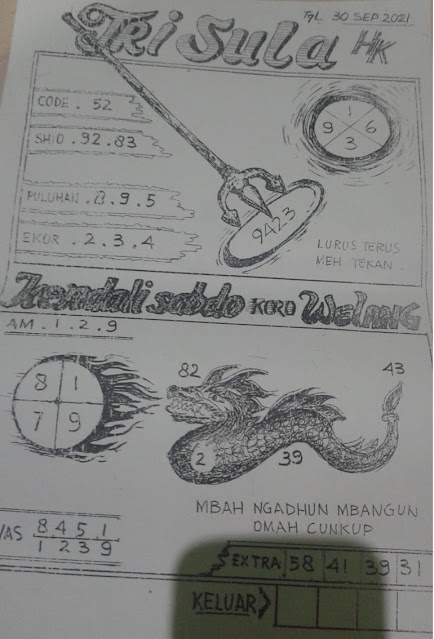 Tgl 30 SEP 2021
Tri Sula HK
CODE . 52
SHIO . 92 . 83
PULUHAN . 8 . 9 . 5
EKOR . 2 . 3 . 4
1
9 6
3
9423
LURUS TERUS
MEH TEKAN .
sabdo KORO Welang
AM . 1 . 2 . 9
8 1
7 9
82
43
2
39
MBAH NGADHUN MBANGUN
OMAH CUNKUP
AS 8 4 5 1
1 2 3 9
EXTRA 58 41 39 31
KELUAR